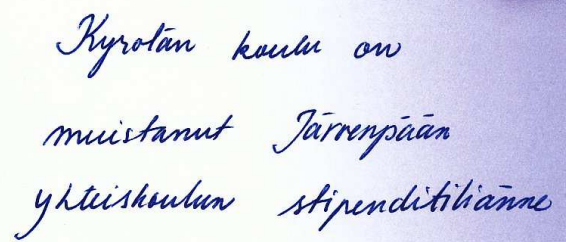 Kyrölän koulu on
muistanut Järvenpään
yhteiskoulun stipenditiliänne